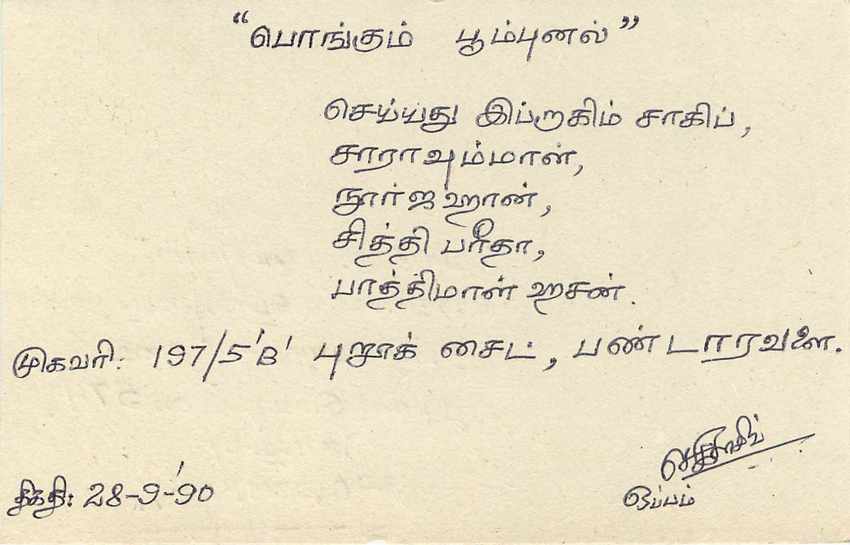 “பொங்கும் பூம்புனல்”
செய்யது இப்றுகிம் சாகிப்,
சாராவும்மாள்,
நூர்ஜஹான்,
சித்தி பரீதா,
பாத்திமாள் ஹசன்.
முகவரி: 197/5'B' புறூக் சைட், பண்டாரவளை.
திகதி: 28-9-'90
ஒப்பம்